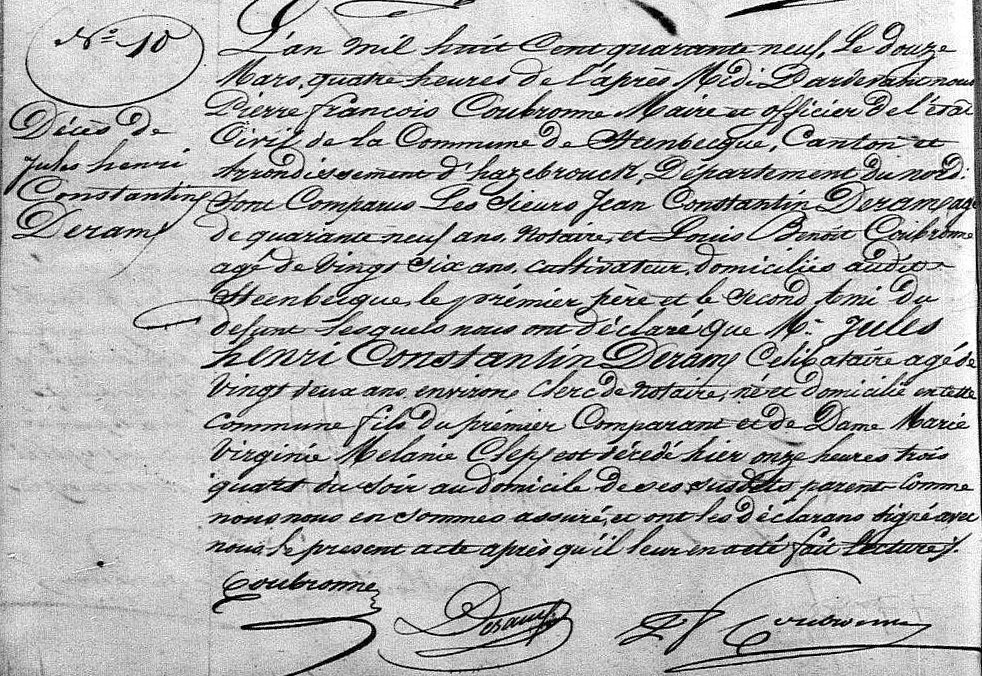 N° 10
Décès de
Jules henri
Constantin
Deram
L'an mil huit Cent quarante neuf, Le douze
Mars, quatre heures de l'après Midi Pardevant nous
Pierre françois Coubronne Maire et officier de l'état
Civil de la Commune de Steenbecque, Canton et
Arrondissement d'hazebrouck, Département du nord:
Sont Comparus Les Sieurs Jean Constantin Deram agé
de quarante neuf ans, Notaire, et Louis Benoit Coubronne
agé de vingt six ans, cultivateur, domiciliés audit
Steenbecque, le prémier père et le second Ami du
defunt Lesquels nous ont déclaré que Mr Jules
henri Constantin Deram Celibataire agé de
Vingt deux ans environs Clerc de Notaire, né et domicilié en cette
Commune fils du prémier Comparant et de Dame Marie
Virginie Melanie est décédé hier onze heures trois
quart du soir au domicile de ses susdits parent Comme
nous nous en sommes assuré, et ont les déclarans signé avec
nous le present acte après qu'il leur en a été fait Lecture.
Coubronne
Deram
P f Coubronne